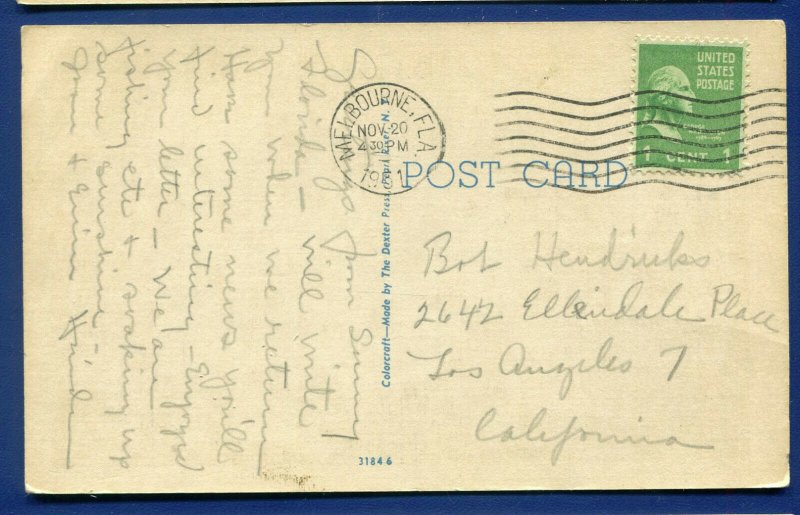 Greetings from Sunny
Florida - Will write
you when we return
Have some news you'll
find interesting - Enjoyed
your letter - We are
fishing etc + soaking up
some sunshine -
MELBOURNE, FLA.
NOV 20
4 30 PM
1951
UNITED
STATES
POSTAGE
1 CENT 1
POST CARD
Colorcraft—Made by The Dexter Press, Pearl River, N. Y.
Bob Hendricks
2642 Ellendale Place
Los Angeles 7
California
31846